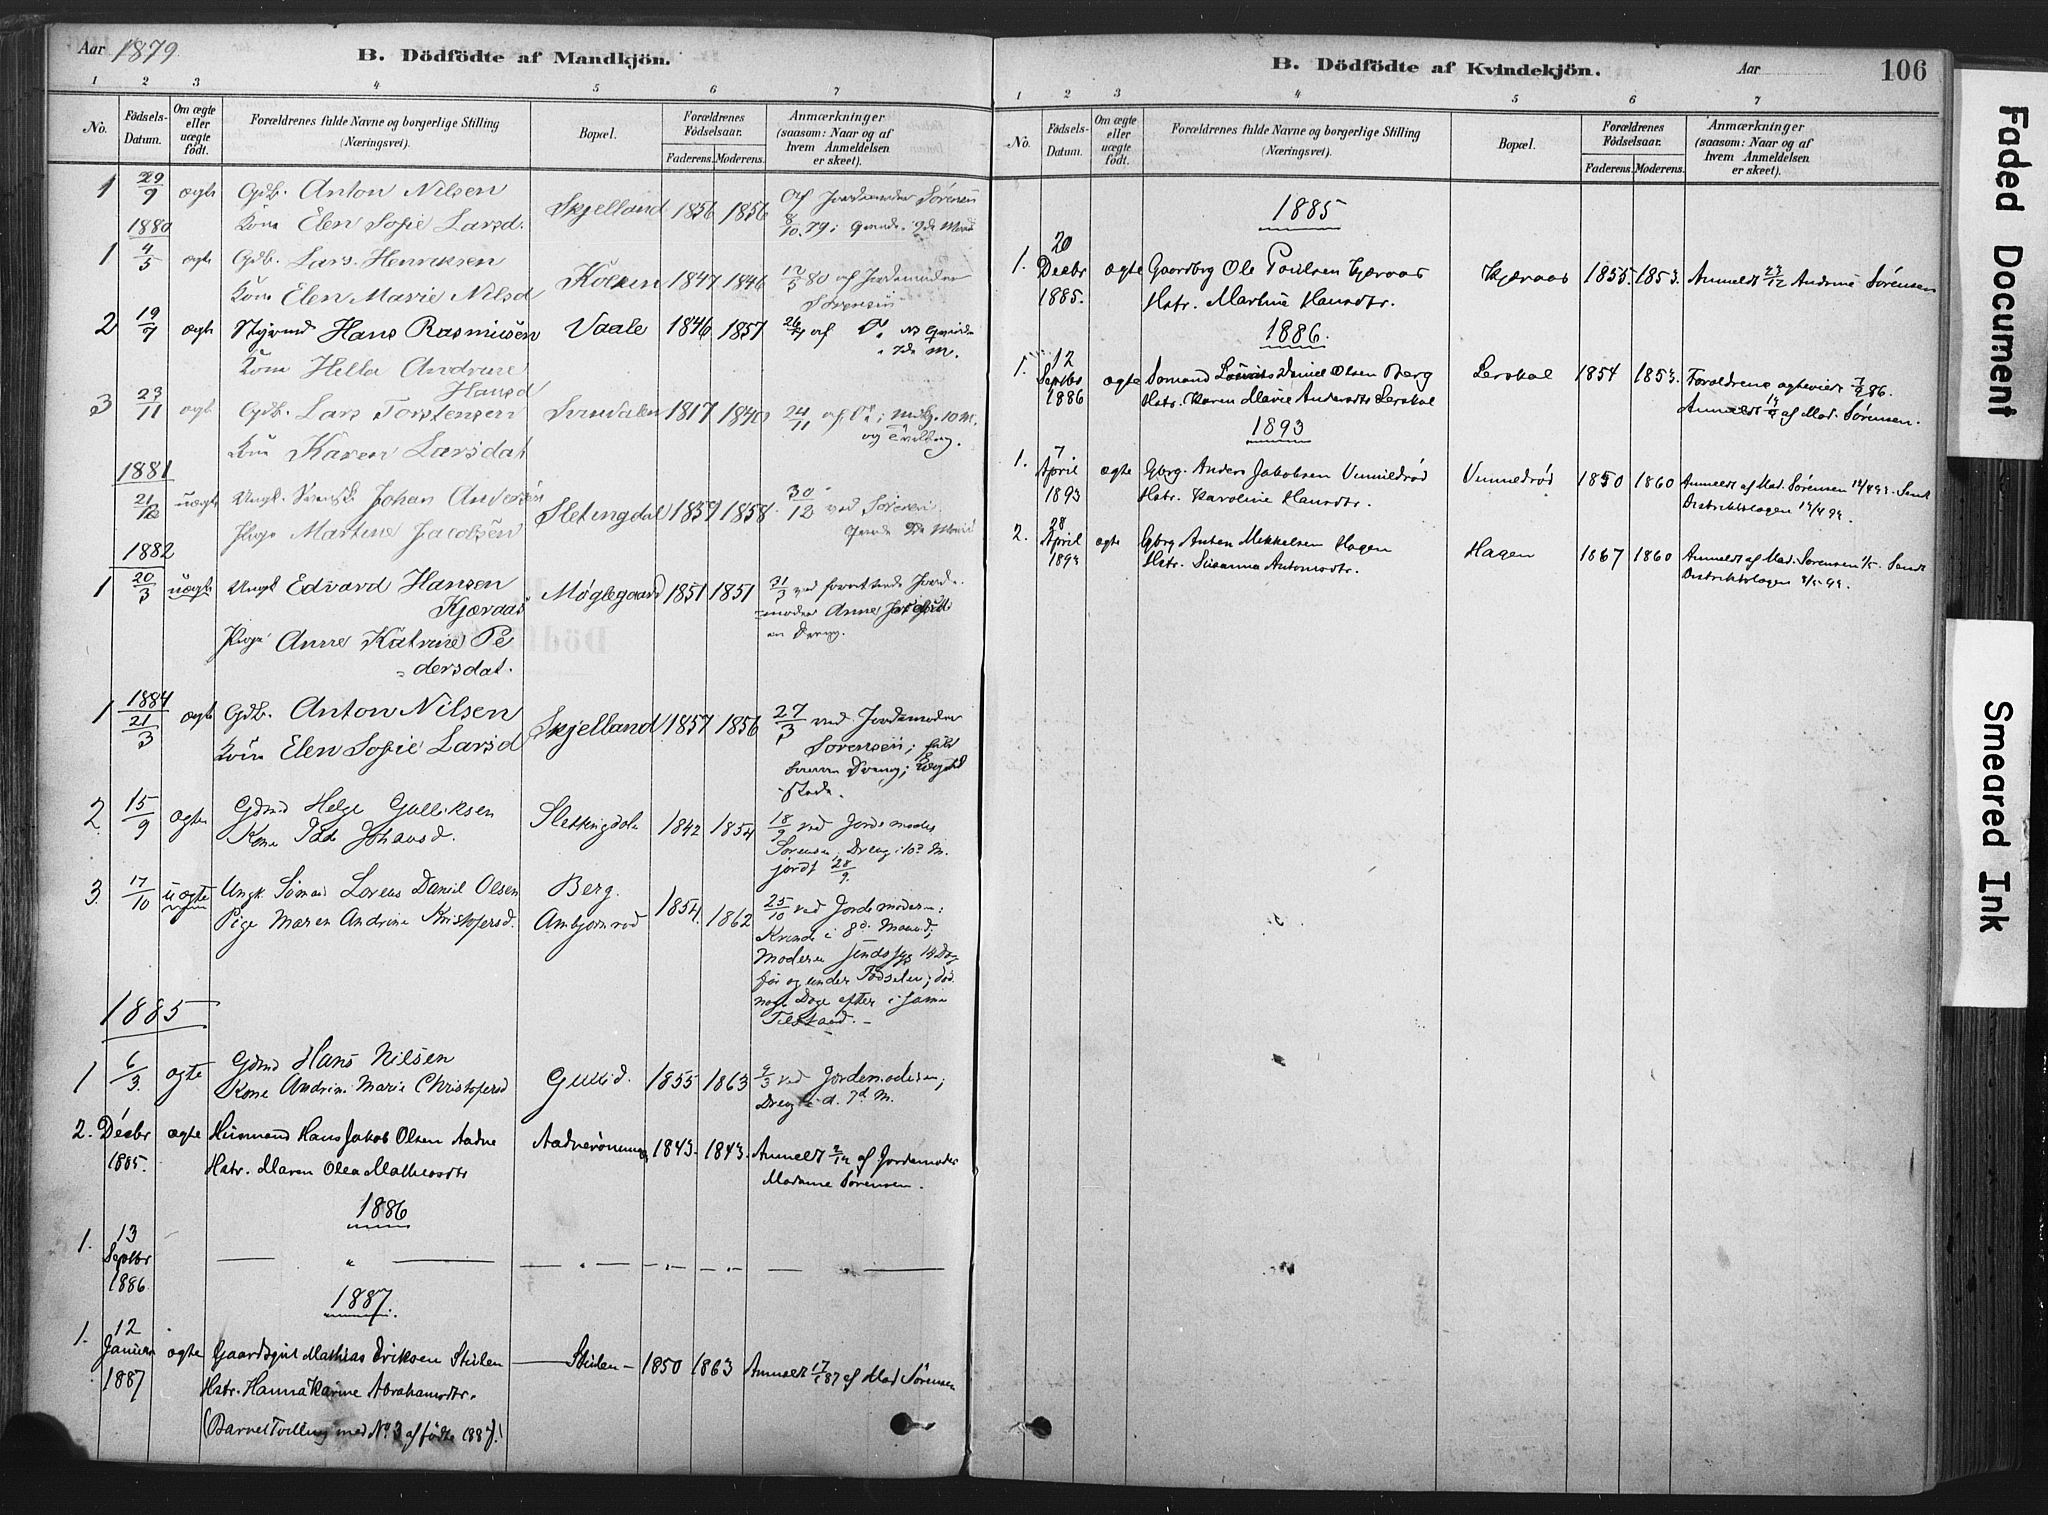 Aar 1879.
B. Dödfödte af Mandkjön.
1 2 3 4 5 6 7
No.
Födsels-Datum.
Om ægte eller uægte födt.
Forældrenes fulde Navne og borgerlige Stilling (Næringsvei).
Bopæl.
Forældrenes Födselsaar.
Faderens. Moderens.
Anmærkninger (saasom: Naar og af hvem Anmeldelsen er skeet).
1 29/9 ægte Gdb. Anton Nilsen Skjelland 1856 1856 Af Jordemoder Sörensen
Kone Elen Sofie Larsd. 8/10 79
1880
1 4/5 ægte Gdb. Lars Henriksen 1847 1846 80 af Jordemoder
Kone Elen Marie Nilsd Sörensen
2 19/9 ægte Styrmd Hans Rasmusen Vaale 1846 1857
Kone Helle Andrine
Hansd
3 23/11 ægte Gdb. Lars Torstensen Svindalen 1817 1840 24/11 af
Kone Karen Larsdat og
1881
21/12 uægte Ungk. Svensk Johan Andersen Sletingdal 1857 1858 30/12 ved Sörensen
Pige Martine Jacobsen
1882
1 20/3 uægte Ungk Edvard Hansen Møglegaard 1851 1851 31/3 ved
Kjæraas moder Anne
Pige Anne Katrine Pe en Dreng.
dersdat.
1884
1 21/3 ægte Gdb. Anton Nilsen Skjelland 1857 1856 27/3 ved Jordemoder
Kone Elen Sofie Larsd Sörensen;
Dreng;
2 15/9 ægte Gdmd Helge Gulliksen Slettingdalen 1842 1854 18/9 ved Jordemoder
Kone Johansd. Sörensen, Dreng i 10de M.
jordf 28/9.
3. 17/10 uægte Ungk. Sömand Lorens Daniel Olsen Berg. 1854. 25/10 ved Jordemoderen:
Pige Maren Andrine Kristofersd. Ambjornrod 1862 Kvinde i 8de Maaned;
Moderen sindssyg 14 Dag
för og under Födselen; död
nogle Dage efter i samme
Tilstand.
1885
1 6/3. ægte Gdmd Hans Nilsen Gullid. 1855 1863 9/3 ved Jordemoderen;
Kone Andrine Marie Christofersd Dreng 7de M.
2. Decbr ægte Husmand Hans Jakob Olsen Aadne 1843. 1843. Anmeldt af Jordemoder
1885. Hstr. Maren Olea Matheasdtr Madame Sörensen.
1886
1. 13 Septbr 1886. — „ — — „ — „ — „ — —
1887.
1. 12 Januar ægte Gaardbrger Mathias Eriksen Stulen — Stulen — 1850 1863 Anmeldt 17/1 87 af Mad Sörensen
1887 Hstr. Hanna Karine Abrahamsdtr.
(Barnet Tvilling med No 3 af födte 1887.)
B. Dödfödte af Kvindekjön.
Aar
106
1 2 3 4 5 6 7
No.
Födsels-Datum.
Om ægte eller uægte födt.
Forældrenes fulde Navne og borgerlige Stilling (Næringsvei).
Bopæl.
Forældrenes Födselsaar.
Faderens. Moderens.
Anmærkninger (saasom: Naar og af hvem Anmeldelsen er skeet).
1885
1. 20 Decbr ægte Gaardbrg Ole Paulsen Kjæraas Kjæraas 1855. 1853. Anmeldt 23/12 Andrine Sörensen
1885. Hstr. Martine Hansdtr.
1886.
1. 12 Septbr ægte Sömand Lourits Daniel Olsen Berg Lerskal 1854 1853. Foreldrene ægteviede 86.
1886 Hstr. Karen Marie Andersdtr Lerskal Anmeldt af Mad. Sörensen.
1893
1. 7 April ægte Gbrg. Anders Jakobsen Vemildrød Vemildrød 1850 1860 Anmeldt af Mad. Sörensen Sendt
1893 Hstr. Karoline Hansdtr. Distriktslægen
2. 28 April ægte Gbrg Anton Mikkelsen Hagen Hagen 1867 1860 Anmeldt af Mad. Sörensen Sendt
1893 Hstr. Susanna Antonsdtr. Distriktslægen
Faded Document
Smeared Ink